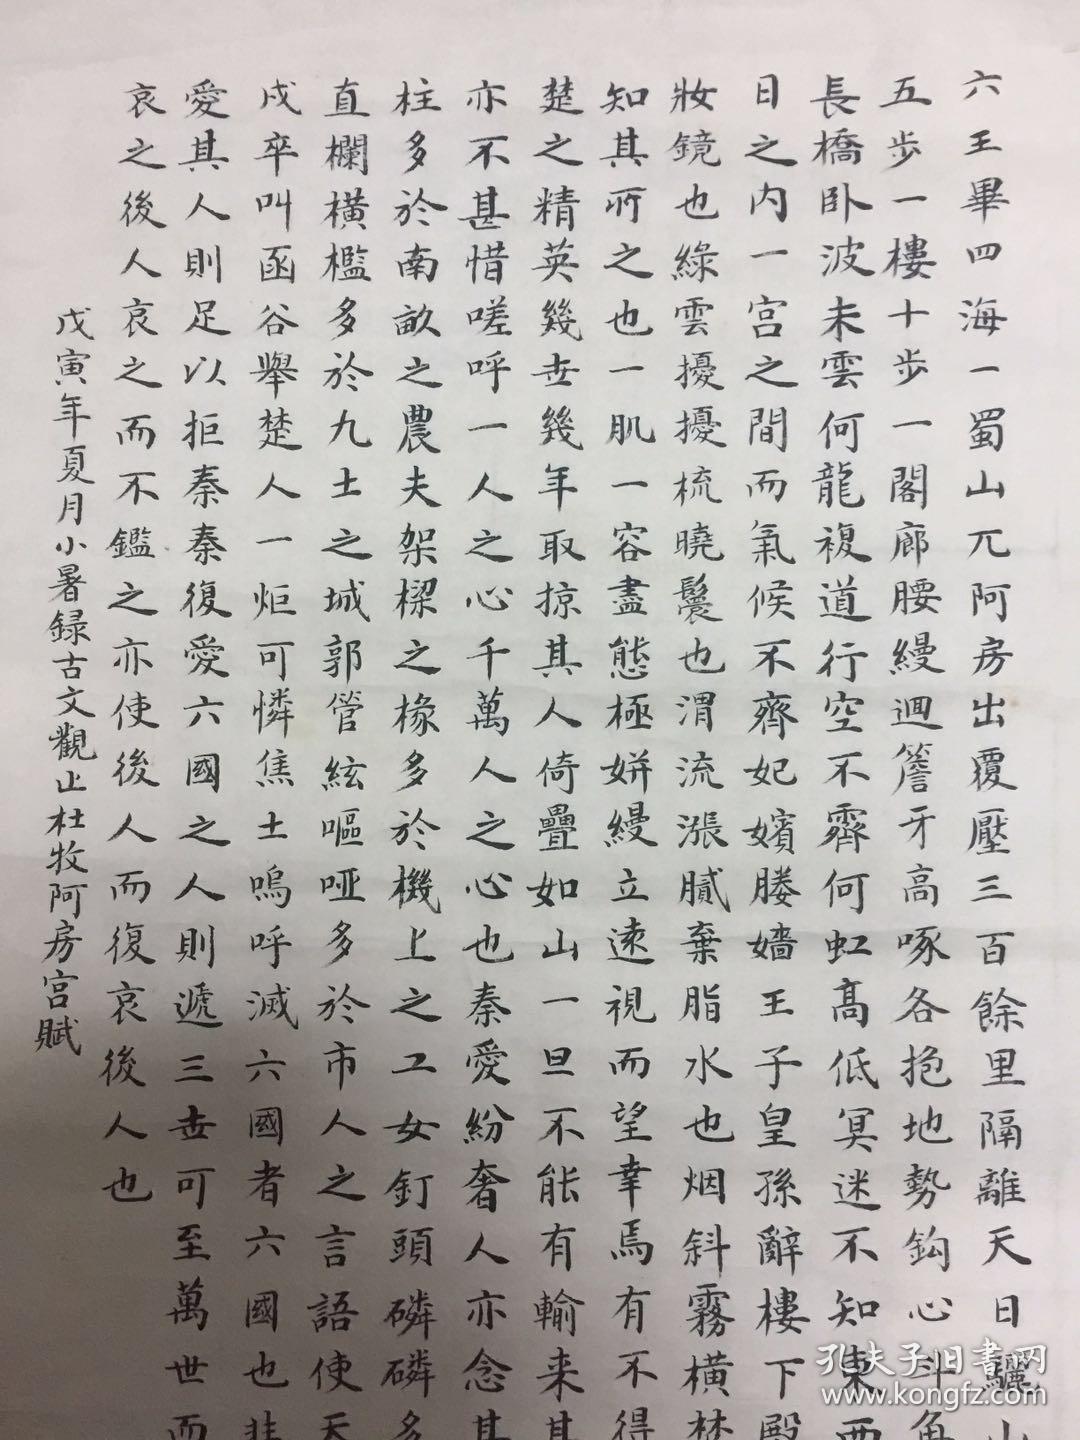 六王畢四海一蜀山兀阿房出覆壓三百餘里隔離天日驪山
五步一樓十步一閣廊腰縵迴簷牙高啄各抱地勢鈎心斗角
長橋卧波未雲何龍複道行空不霽何虹高低冥迷不知東西
日之内一宫之間而氣候不齊妃嬪媵嬙王子皇孫辭樓下殿
妝鏡也綠雲擾擾梳曉鬟也渭流漲膩棄脂水也烟斜霧橫焚
知其所之也一肌一容盡態極妍縵立遠視而望幸焉有不得
楚之精英幾世幾年取掠其人倚疊如山一旦不能有輸来其
亦不甚惜嗟呼一人之心千萬人之心也秦愛紛奢人亦念其
柱多於南畝之農夫架樑之椽多於機上之工女釘頭磷磷多
直欄橫檻多於九土之城郭管絃嘔啞多於市人之言語使天
戍卒叫函谷舉楚人一炬可憐焦土嗚呼滅六國者六國也非
愛其人則足以拒秦秦復愛六國之人則遞三世可至萬世而
哀之後人哀之而不鑑之亦使後人而復哀後人也
戊寅年夏月小暑録古文觀止杜牧阿房宫賦
孔夫子旧書网
www.kongfz.com